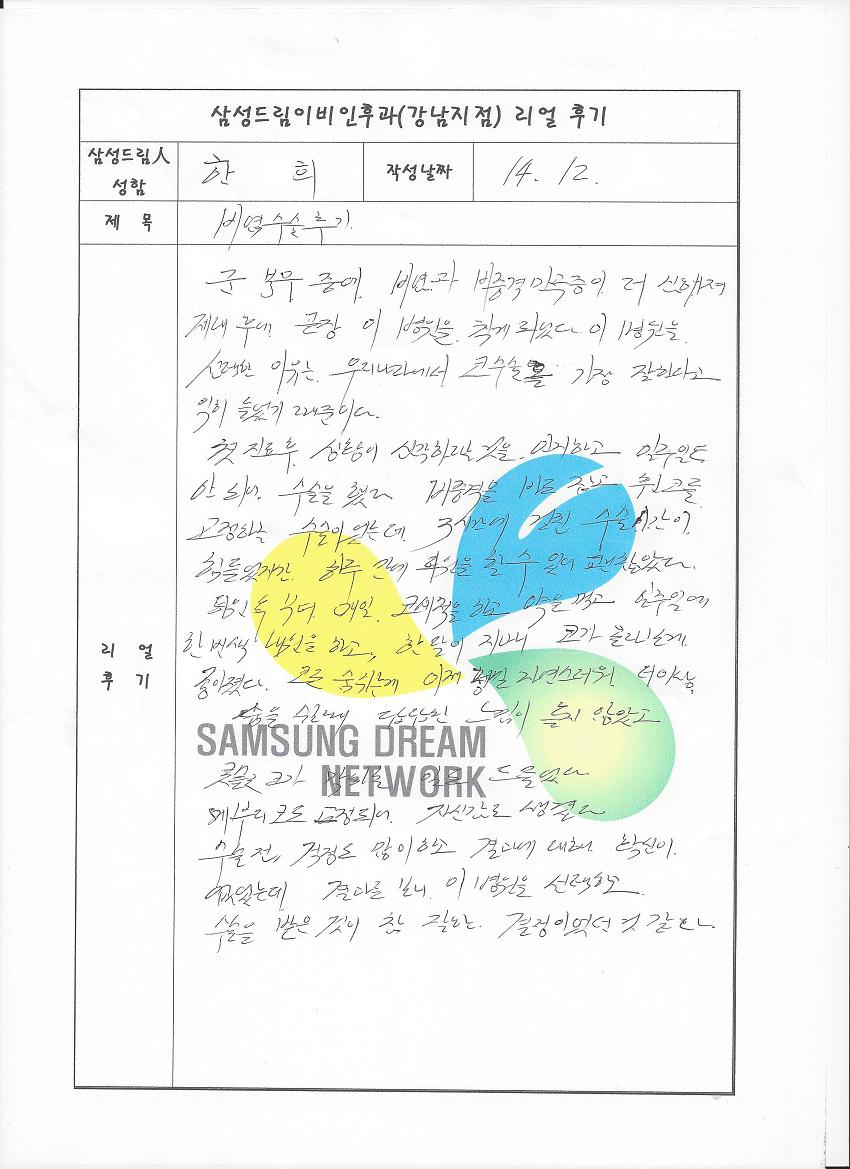 삼성드림이비인후과(강남지점) 리얼 후기
삼성드림人 성함
한 희
작성날짜
14. 12.
제 목
비염수술후기
리 얼 후 기
군 복무 중에, 비염과 비중격만곡증이 더 심해져
제대 후에 곧장 이 병원을 찾게 되었다. 이 병원을
선택한 이유는, 우리나라에서 코수술을 가장 잘한다고
익히 들었기 때문이다.
첫 진료후, 상황이 심각하다는 것을 인지하고 일주일도
안 되어 수술을 했다. 비중격을 바로 잡고 휜코를
고정하는 수술이었는데, 3시간에 걸친 수술시간이
힘들었지만 하루 만에 퇴원을 할 수 있어 괜찮았다.
매일 코세척을 하고 약을 먹고 일주일에
한 번씩 내원을 하고, 한 달이 지나니 코가 몰라보게
좋아졌다. 코로 숨쉬는게 이제 정말 자연스러워 더이상
숨을 쉬는데 답답한 느낌이 들지 않았고
SAMSUNG DREAM
NETWORK
코가 드물었다
매부리코도 교정되어 자신감도 생겼다
수술 전, 걱정도 많이하고 결과에 대해 확신이
없었는데 결과를 보니 이 병원을 선택하고
수술을 받은 것이 참 잘한 결정이었던 것 같다.